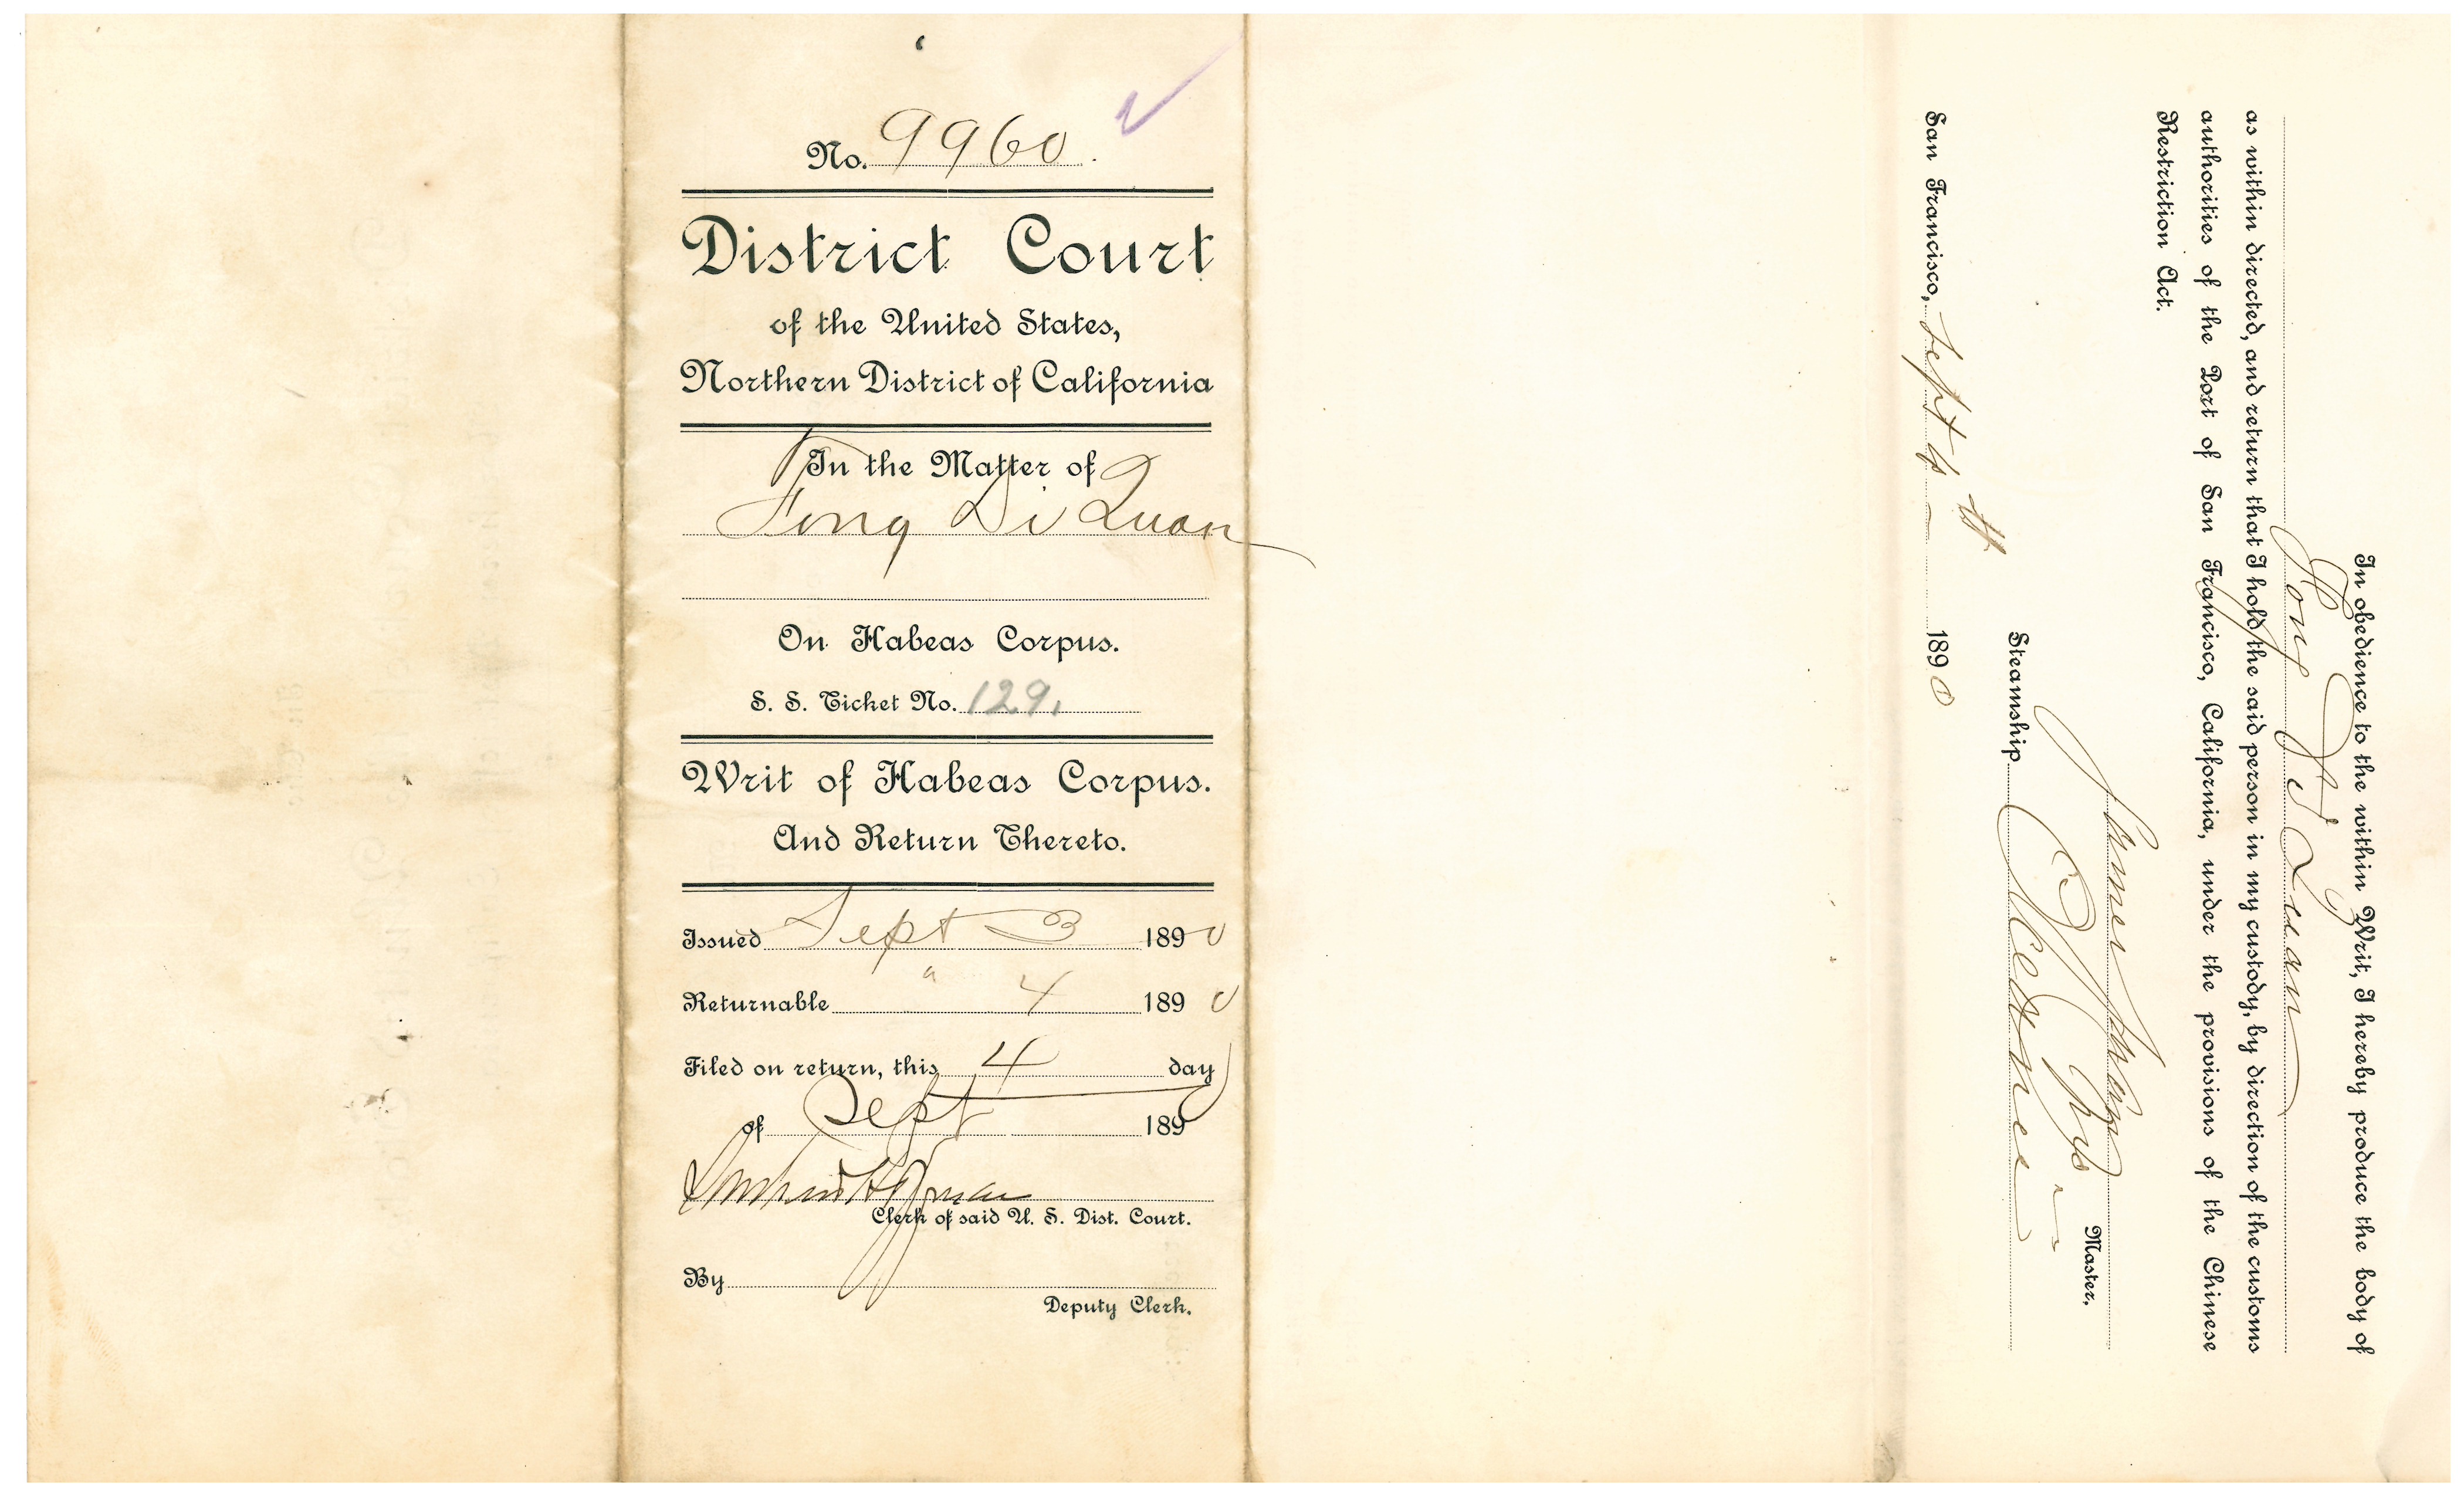 No. 9960.
District Court
of the United States,
Northern District of California
In the Matter of
Fong Di Quan
On Habeas Corpus.
S. S. Ticket No. 129.
Writ of Habeas Corpus.
And Return Thereto.
Issued Sept 3 1890
Returnable " 4 1890
Filed on return, this 4 day
of Sept 189
Clerk of said U. S. Dist. Court.
By
Deputy Clerk.
In obedience to the within Writ, I hereby produce the body of
Fong Di Quan
as within directed, and return that I hold the said person in my custody, by direction of the customs
authorities of the Port of San Francisco, California, under the provisions of the Chinese
Restriction Act.
Master.
Steamship
San Francisco, Sept 4 th 1890